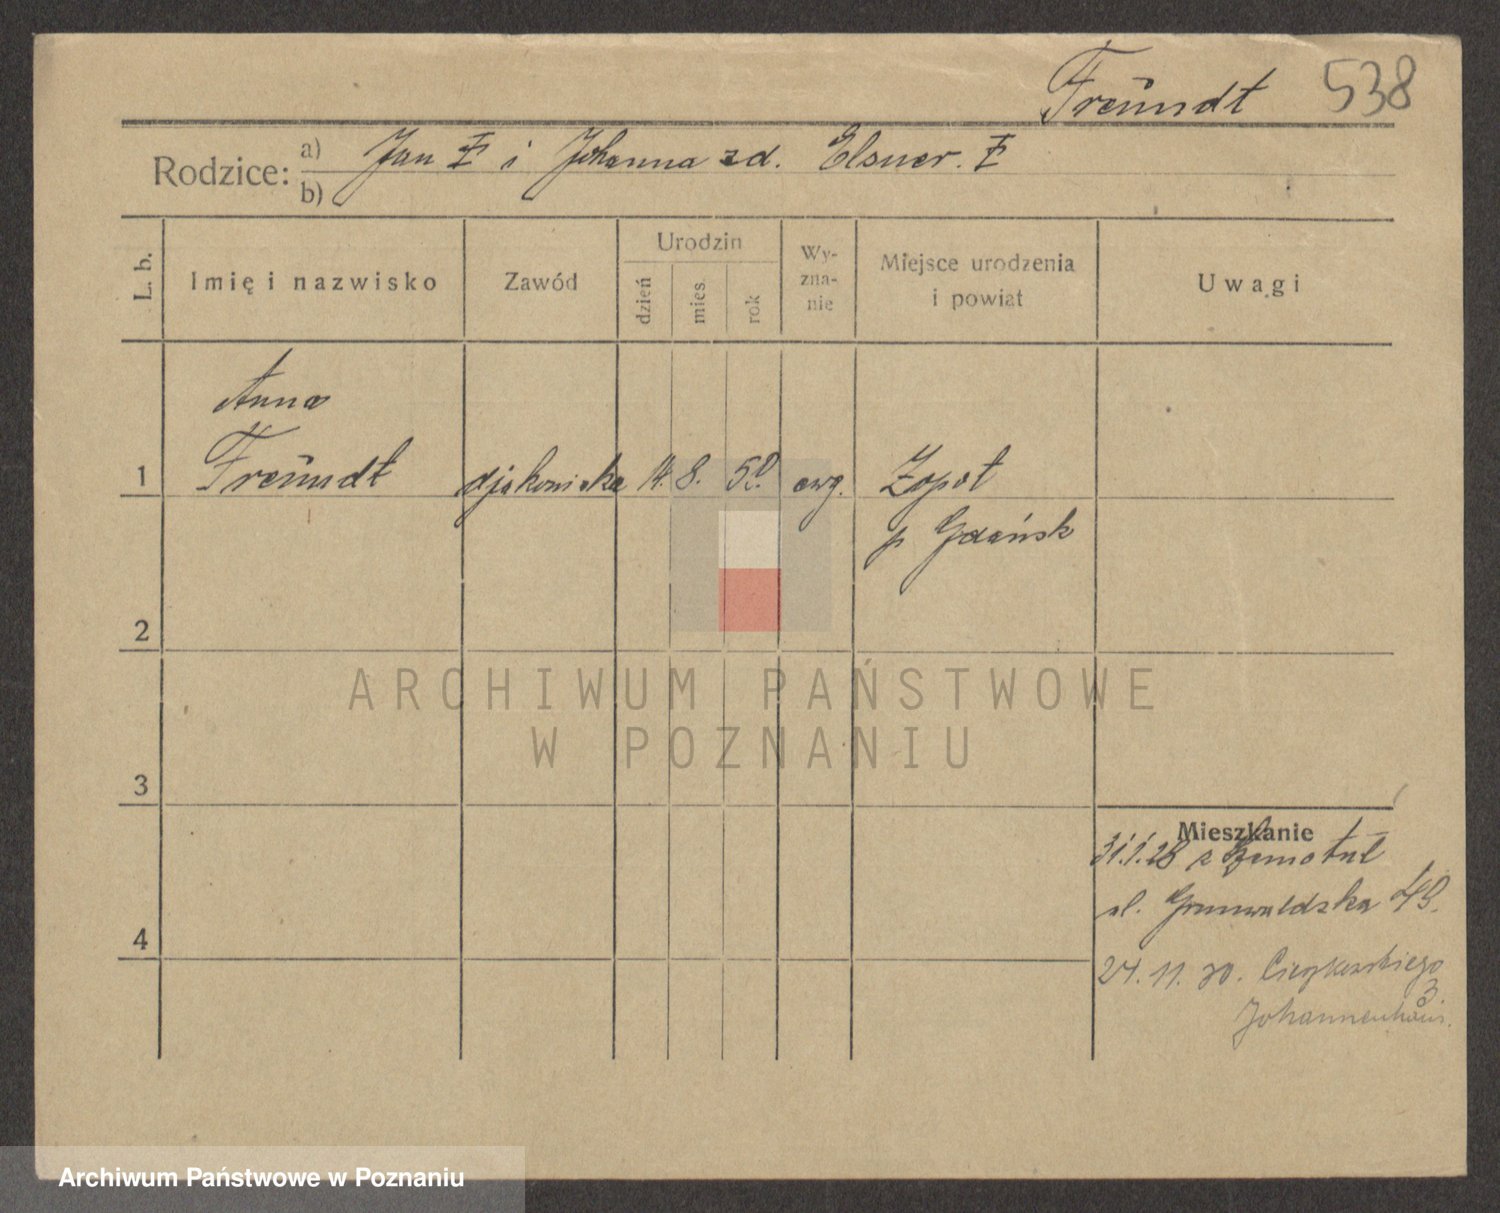 Freŭndt 538
Rodzice: a) Jan F i Johanna zd. Elsner. F
b)
L. b.
Imię i nazwisko
Zawód
Urodzin
dzień
mies.
rok
Wy-
zna-
nie
Miejsce urodzenia
i powiat
Uwagi
Anna
1 Freŭndt djakoniska 14. 8. 50. ewg. Zopot
p Gdańsk
2
ARCHIWUM PAŃSTWOWE
W POZNANIU
3
Mieszkanie
31.1.28 z Szamotuł
ul. Grunwaldska 49.
4
24.11.30. Cieszkowskiego
3
Johannenhaŭs.
Archiwum Państwowe w Poznaniu